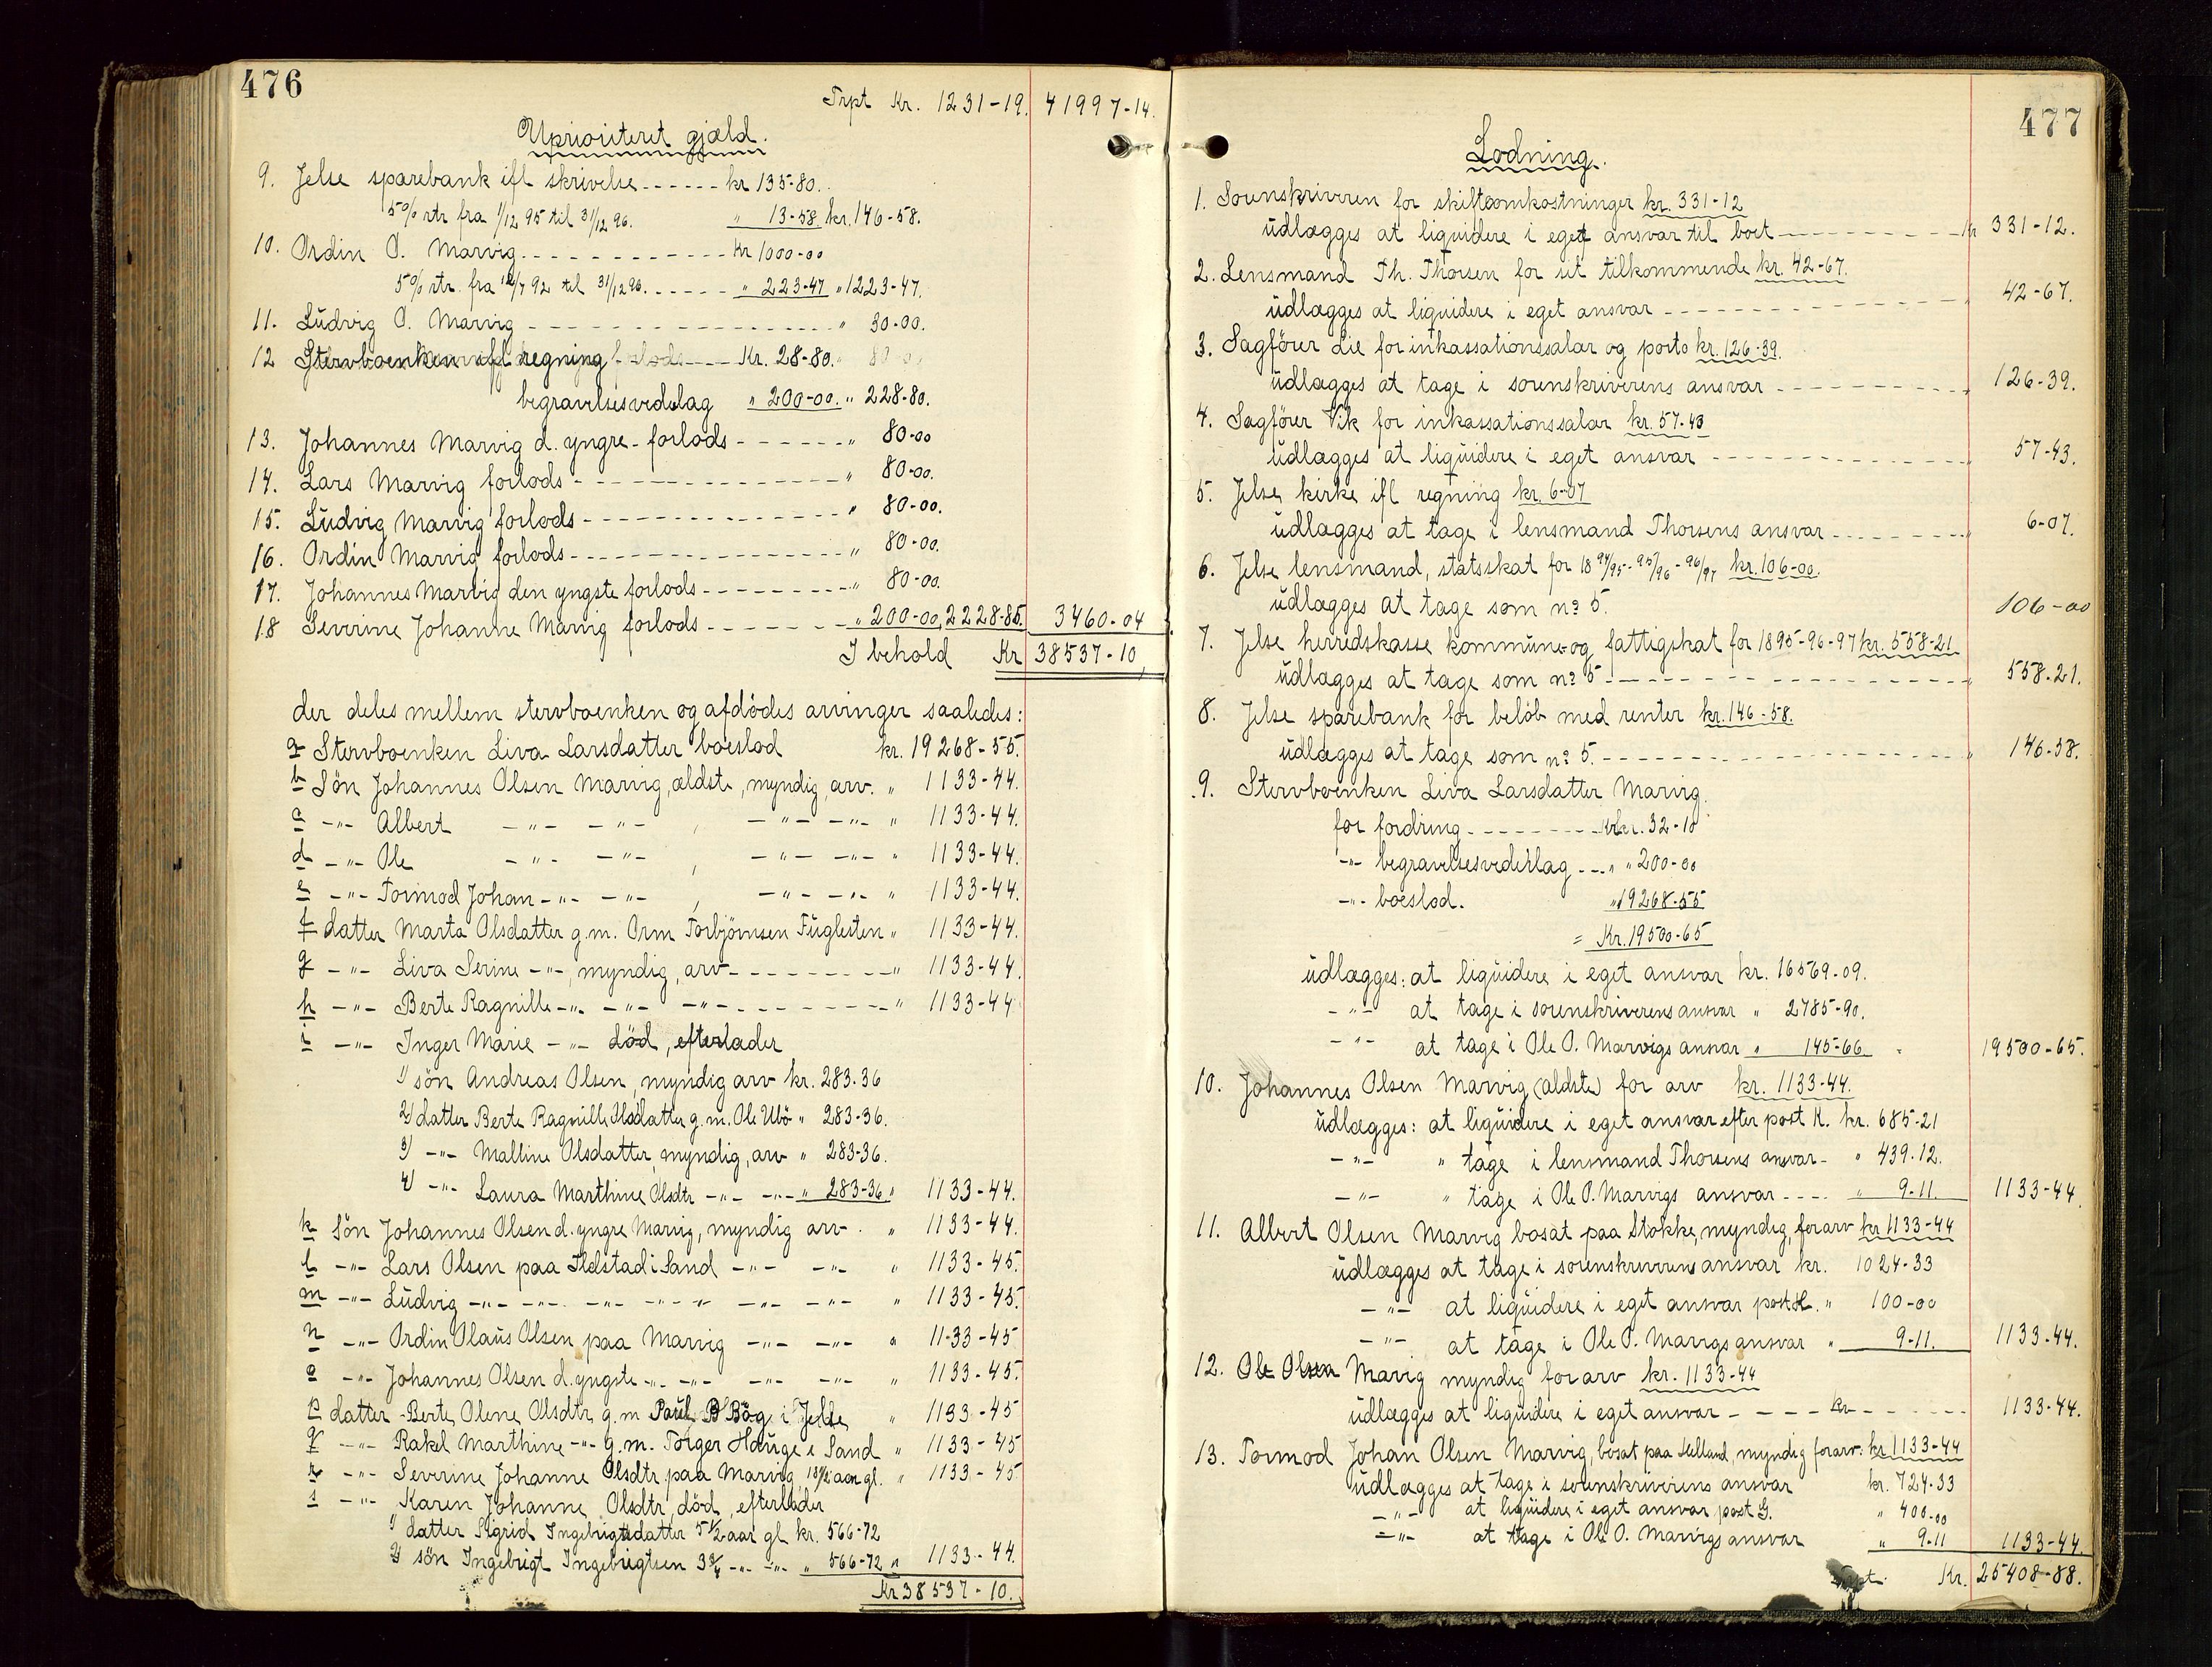 476
Trpt Kr. 1231-19. 41997-14.
Uprioriteret gjæld.
9. Jelse sparebank ifl skrivelse ------ kr 135-80.
5% rtr fra 1/12 95 til 31/12 96. " 13-58. kr. 146-58.
10. Ordin O. Marvig ------------ Kr 1000-00
5% rtr. fra 12/7 92 til 31/12 96. ----- " 223-47 " 1223-47.
11. Ludvig O. Marvig ------------------ " 30-00.
12 Stervboenken ifl regning ---- Kr. 28-80.
begravelsesvederlag " 200-00. " 228-80.
13. Johannes Marvig d. yngre - forlods ------ " 80-00
14. Lars Marvig forlods -------------- " 80-00.
15. Ludvig Marvig forlods -------------- " 80-00.
16. Ordin Marvig forlods --------------- " 80-00.
17. Johannes Marvig den yngste forlods --------- " 80-00.
18 Severine Johanne Marvig forlods ------ " 200-00, 2228-85. 3460-04
I behold Kr 38537-10,
der deles mellem stervboenken og afdödes arvinger saaledes:
a Stervboenken Liva Larsdatter boeslod kr. 19268-55.
b Sön Johannes Olsen Marvig, ældste, myndig, arv. " 1133-44.
c -"- Albert -"- -"- , -"- -"- " 1133-44.
d -"- Ole -"- -"- , -"- -"- " 1133-44.
e -"- Tormod Johan -"- -"- , -"- -"- " 1133-44.
f datter Marta Olsdatter g.m. Orm Torbjörnsen Fuglesten " 1133-44.
g -"- Liva Serine -"-, myndig, arv -------- " 1133-44.
h -"- Berte Ragnille -"- -"- -"- --------- " 1133-44
i -"- Inger Marie -"- död, efterlader
1) sön Andreas Olsen, myndig arv kr. 283-36
2) datter Berte Ragnille Olsdatter g.m. Ole Ubö " 283-36.
3) -"- Malline Olsdatter, myndig, arv " 283-36.
4) -"- Laura Marthine Olsdtr -"- -"- " 283-36 " 1133-44.
k Sön Johannes Olsen d. yngre Marvig, myndig arv. " 1133-44.
l -"- Lars Olsen paa Ilstad i Sand -"- -"- " 1133-45.
m -"- Ludvig -"- -"- -"- -"- " -"- -"- " 1133-45.
n -"- Ordin Olaus Olsen paa Marvig -"- -"- " 1133-45
o -"- Johannes Olsen d. yngste -"- -"- -"- -"- " 1133-45.
p datter -Berte Olene Olsdtr g.m Paul B Bög i Jelse " 1133-45
q -"- Rakel Marthine -"- g.m. Torger Hauge i Sand " 1133-45
r -"- Severine Johanne Olsdtr paa Marvig, aar gl. " 1133-45
s -"- Karen Johanne Olsdtr, död, efterlader
1) datter Sigrid Ingebrigtsdatter 5 1/2 aar gl kr. 566-72
2) sön Ingebrigt Ingebrigtsen 3 3/4 -"- -"- " 566-72 " 1133-44.
Kr 38537-10.
477
Lodning.
1. Sorenskriveren for skifteomkostninger kr. 331-12
udlægges at liquidere i eget ansvar til boet --------- kr 331-12.
2. Lensmand Th. Thorsen for sit tilkommende kr. 42-67.
udlægges at liquidere i eget ansvar --------- " 42-67.
3. Sagförer Lie for inkassationssalar og porto kr. 126-39.
udlægges at tage i sorenskriverens ansvar ---------- " 126-39.
4. Sagförer Vik for inkassationssalar kr. 57-43
udlægges at liquidere i eget ansvar ------------- " 57-43.
5. Jelse kirke ifl regning kr. 6-07
udlægges at tage i lensmand Thorsens ansvar -------- " 6-07.
6. Jelse lensmand, statsskat for 18 94/95 - 95/96 - 96/97 kr. 106-00.
udlægges at tage som no 5. 106-00
7. Jelse herredskasse kommune- og fattigskat for 1895-96-97 kr. 558-21
udlægges at tage som no 5 ------------------ " 558.21.
8. Jelse sparebank for belöb med renter kr. 146-58.
udlægges at tage som no 5. ------------------ " 146-58.
9. Stervboenken Liva Larsdatter Marvig.
for fordring --------- kr. 32-10
-"- begravelsesvederlag ---- " 200-00
-"- boeslod. " 19268-55
= Kr. 19500-65
udlægges: at liquidere i eget ansvar kr. 16569-09.
-"- at tage i sorenskriverens ansvar " 2785-90.
-"- at tage i Ole O. Marvigs ansvar " 145-66. " 19500-65.
10. Johannes Olsen Marvig (ældste) for arv kr. 1133-44.
udlægges: at liquidere i eget ansvar efter post K. kr. 685-21
-"- " tage i lensmand Thorsens ansvar - " 439-12.
-"- " tage i Ole O. Marvigs ansvar ---- " 9-11. 1133-44.
11. Albert Olsen Marvig bosat paa Stokke, myndig, for arv kr 1133-44
udlægges at tage i sorenskriverens ansvar kr. 1024-33
-"- at liquidere i eget ansvar post H. " 100-00
-"- at tage i Ole O. Marvigs ansvar " 9-11. 1133-44.
12. Ole Olsen Marvig myndig for arv kr. 1133-44
udlægges at liquidere i eget ansvar - - - - kr ------ 1133-44.
13. Tormod Johan Olsen Marvig, bosat paa Helland, myndig for arv: kr. 1133-44
udlægges at tage i sorenskriverens ansvar kr. 724-33
-"- at liquidere i eget ansvar post G. " 400-00
-"- at tage i Ole O. Marvigs ansvar " 9-11 1133-44.
Trpt. Kr. 25408-88.